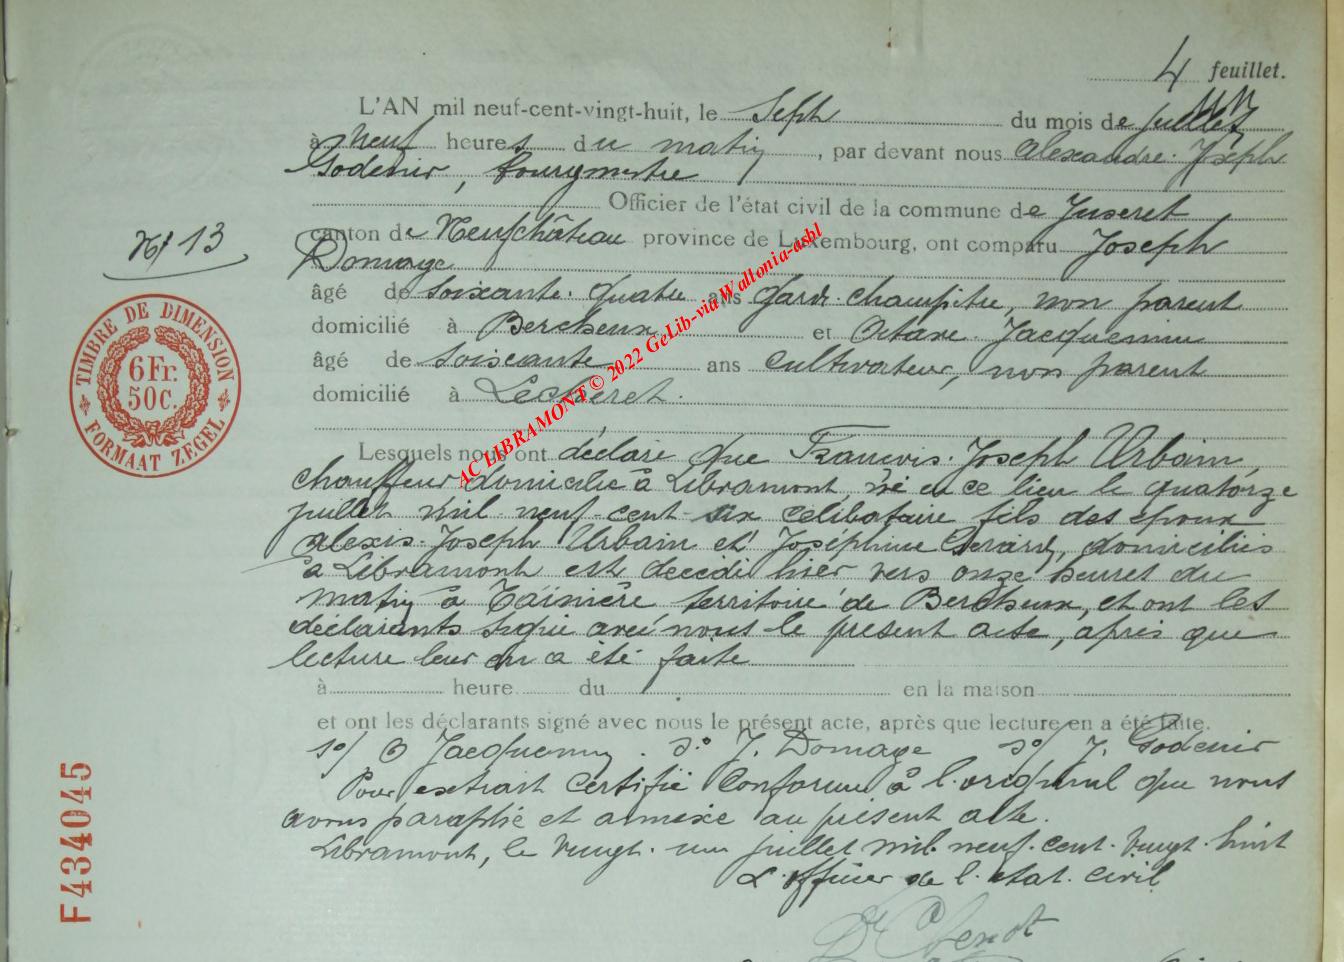 4 feuillet.
L'AN mil neuf-cent-vingt-huit, le Seph du mois de juillet
à Neuf heures du matin, par devant nous Alexandre. Joseph
Godenir, bourgmestre
Officier de l'état civil de la commune de Juseret
canton de Neufchâteau province de Luxembourg, ont comparu Joseph
Domage
âgé de soixante. quatre ans Garde. champêtre, non parent
domicilié à Bercheux et Octave. Jacquemin
âgé de soixante ans cultivateur, non parent
domicilié à Lescheret.
Lesquels nous ont déclaré que François. Joseph Urbain
chauffeur domicilié à Libramont, né en ce lieu le quatorze
juillet mil neuf-cent-six célibataire fils des époux
Alexis. Joseph Urbain et Joséphine Gérard, domiciliés
à Libramont est décédé hier vers onze heures du
matin à territoire de Bercheux, et ont les
déclarants signé avec nous le présent acte, après que
lecture leur en a été faite
à heure du en la maison
et ont les déclarants signé avec nous le présent acte, après que lecture en a été faite.
so/ O Jacquemin. so J. Domage so/ J. Godenir
Pour extrait certifié conforme à l'original que nous
avons paraphé et annexé au présent acte.
Libramont, le vingt. un juillet mil. neuf. cent. vingt. huit
L'officier de l'état. civil
N° 13
TIMBRE DE DIMENSION
6 Fr.
50 C.
FORMAAT ZEGEL
F434045
AC LIBRAMONT © 2022 GeLib-via Wallonia-asbl